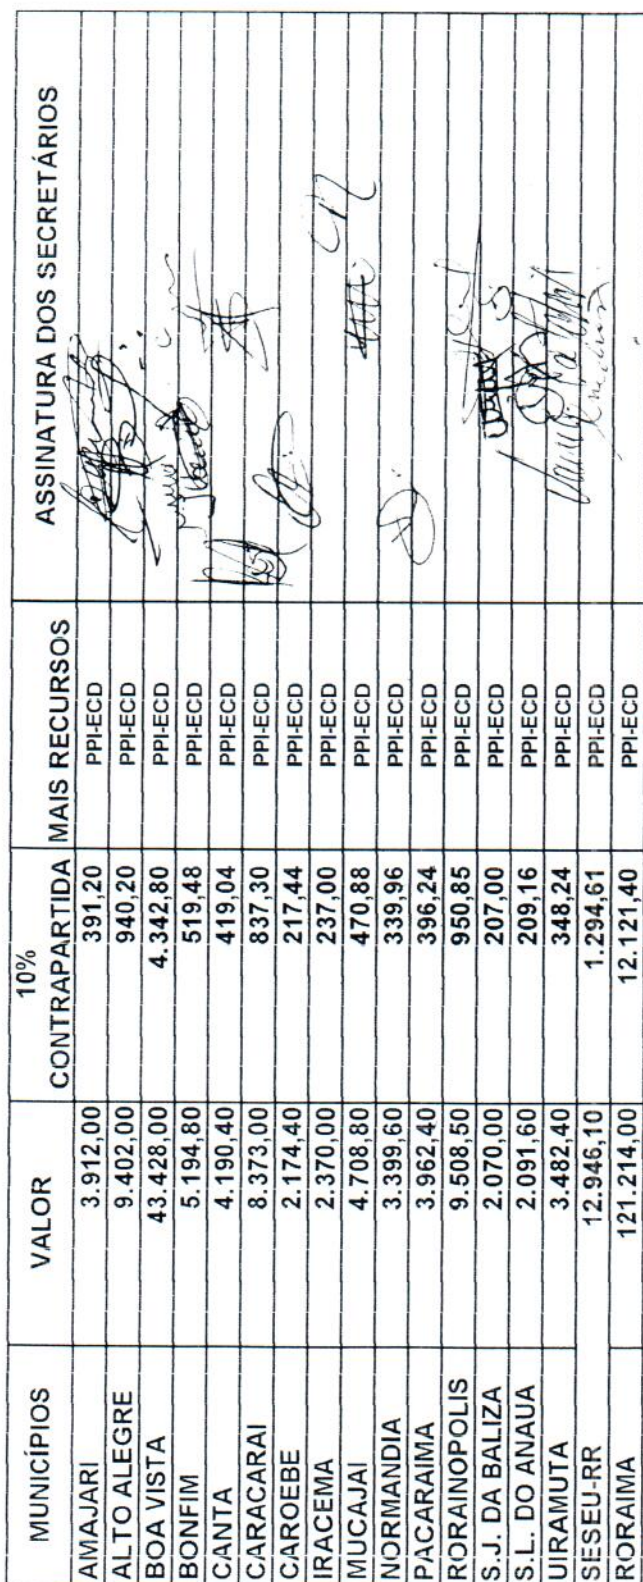 MUNICÍPIOS VALOR 10% CONTRAPARTIDA MAIS RECURSOS ASSINATURA DOS SECRETÁRIOS
AMAJARI 3.912,00 391,20 PPI-ECD
ALTO ALEGRE 9.402,00 940,20 PPI-ECD
BOA VISTA 43.428,00 4.342,80 PPI-ECD
BONFIM 5.194,80 519,48 PPI-ECD
CANTA 4.190,40 419,04 PPI-ECD
CARACARAI 8.373,00 837,30 PPI-ECD
CAROEBE 2.174,40 217,44 PPI-ECD
IRACEMA 2.370,00 237,00 PPI-ECD
MUCAJAI 4.708,80 470,88 PPI-ECD
NORMANDIA 3.399,60 339,96 PPI-ECD
PACARAIMA 3.962,40 396,24 PPI-ECD
RORAINOPOLIS 9.508,50 950,85 PPI-ECD
S.J. DA BALIZA 2.070,00 207,00 PPI-ECD
S.L. DO ANAUA 2.091,60 209,16 PPI-ECD
UIRAMUTA 3.482,40 348,24 PPI-ECD
SESEU-RR 12.946,10 1.294,61 PPI-ECD
RORAIMA 121.214,00 12.121,40 PPI-ECD